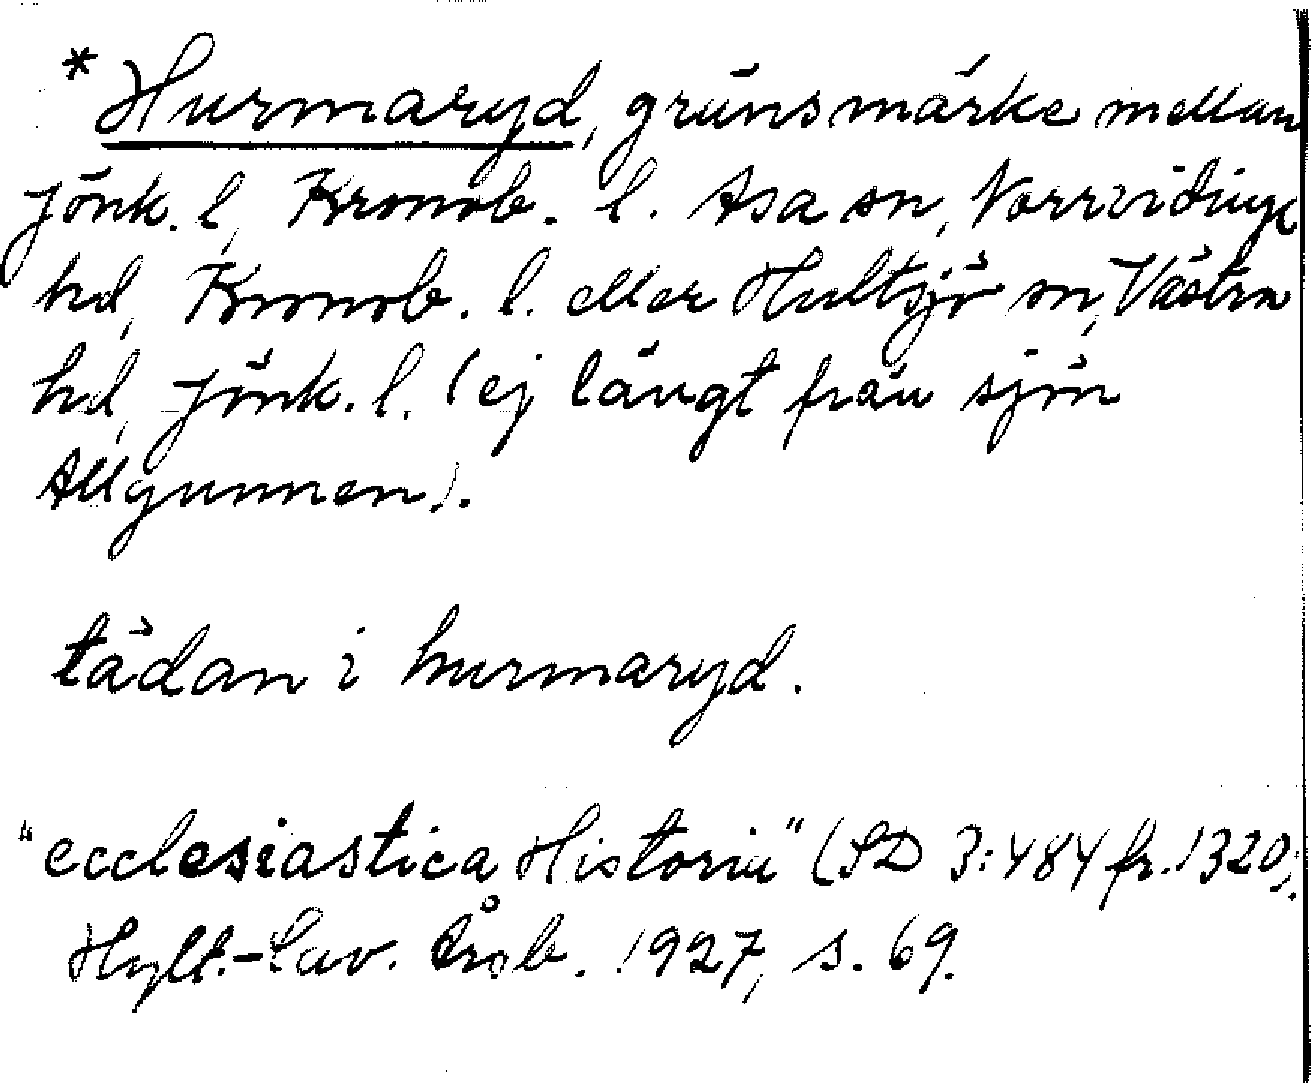 * Hurmaryd, gränsmärke mellan
Jönk. l, Kronob. l. Asa sn, Norrvidinge
hd, Kronob. l. eller Hultsjö sn, Västra
hd, Jönk. l. (ej långt från sjön
Allgunnen).
tådan i hurmaryd.
"ecclesiastica Historia" (SD 3:484 fr. 1320);
Hylt.-Cav. Årsb. 1927, s. 69.